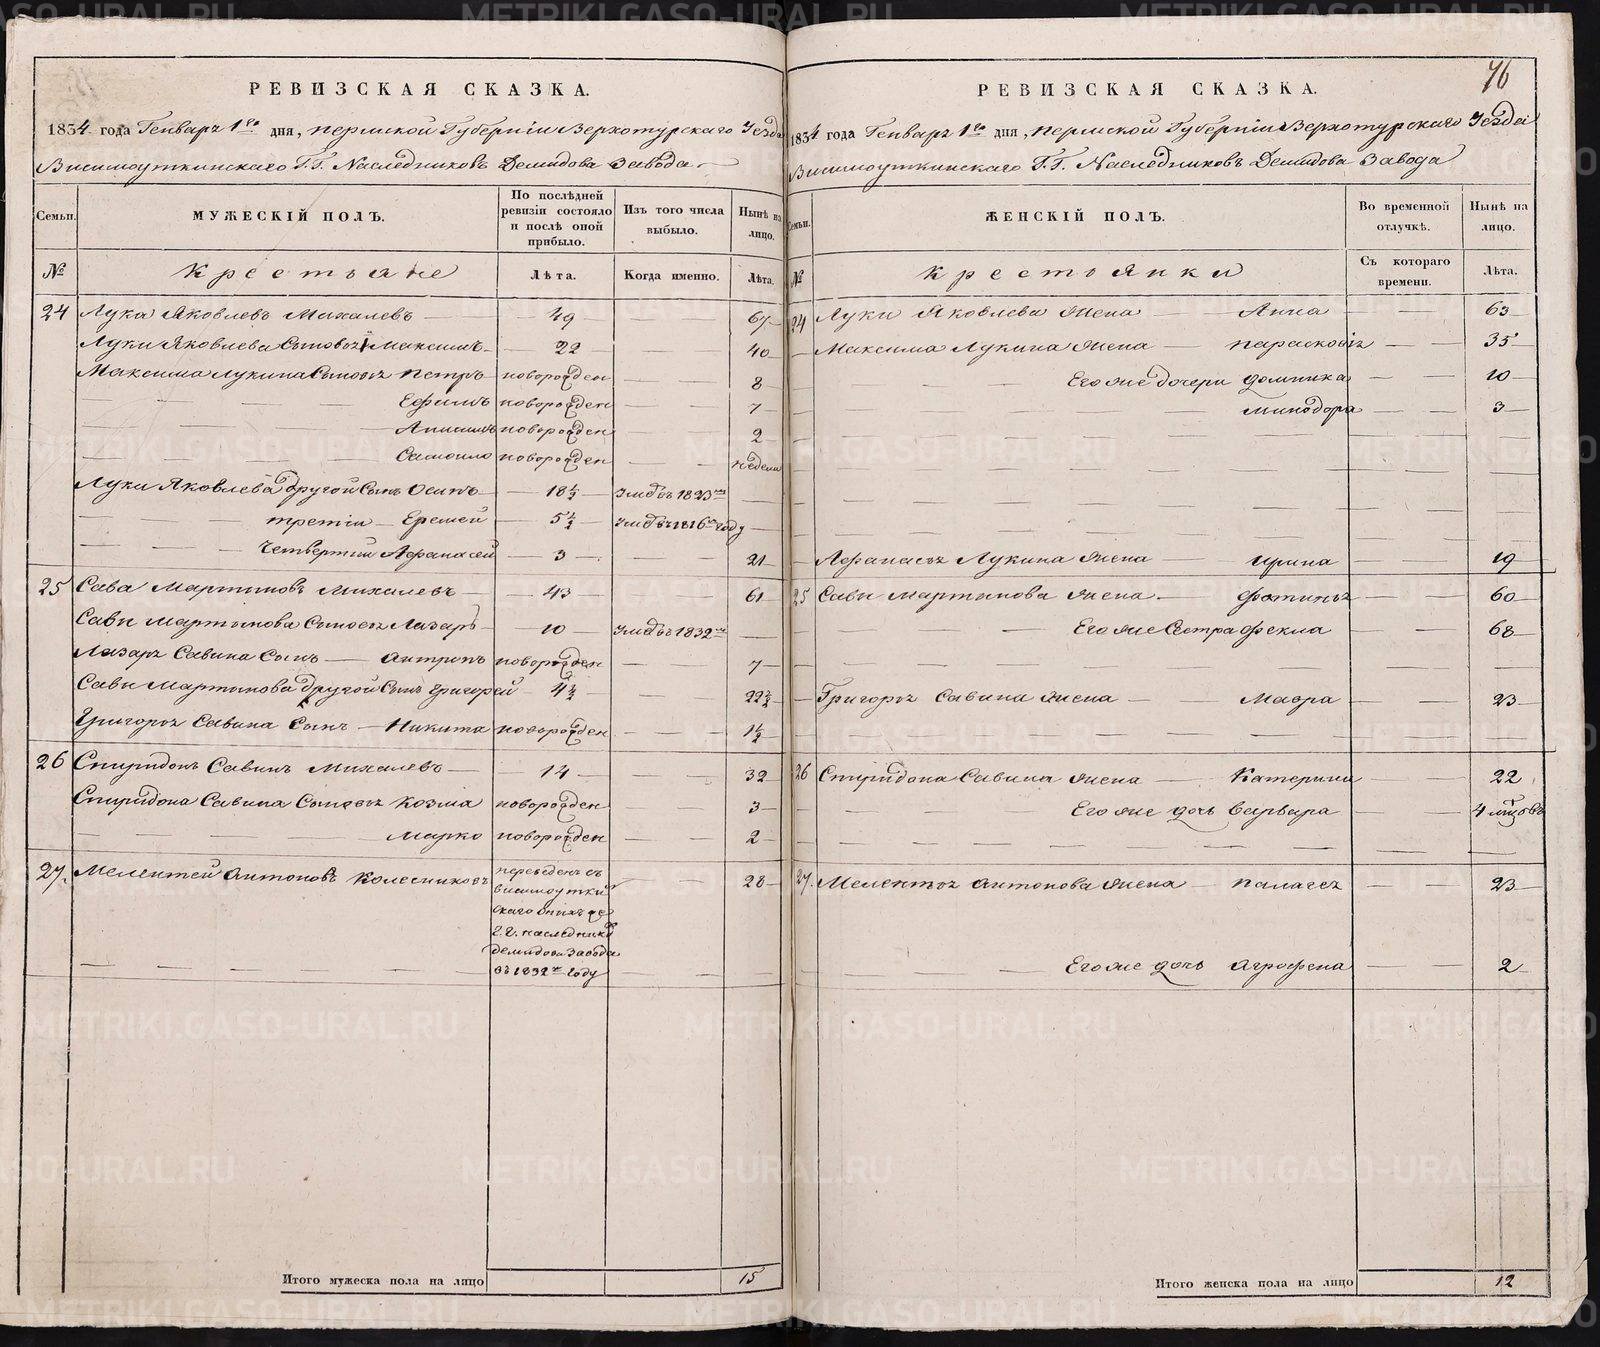 РЕВИЗСКАЯ СКАЗКА.
1834 года Генваря 1го дня, пермской Губерніи Верхотурскаго Уезда
Висимоуткинскаго Г.Г. Наследниковъ Демидова завода
Семьи.
МУЖЕСКІЙ ПОЛЪ.
По послѣдней ревизіи состояло и послѣ оной прибыло.
Изъ того числа выбыло.
Нынѣ на лицо.
№
Крестьяне
Лѣта.
Когда именно.
Лѣта.
24 Лука Яковлевъ Михалевъ 49 67
Луки Яковлева Сыновья Максимъ 22 40
Максима Лукина Сыновья Петръ новорожден 8
Ефимъ новорожден 7
Анисимъ новорожден 2
Самоило новорожден недели
Луки Яковлева другой Сынъ Осипъ 18½ умре въ 1823м
третіи Еремей 5½ умре въ 1816м году
Четвертый Афанасей 3 21
25 Сава Мартиновъ Михалевъ 43 61
Савы Мартынова Сыновья Лазарь 10 умре въ 1832м
Лазаря Савина Сынъ Антропъ новорожден 7
Савы Мартынова другой Сынъ Григорей 4½ 22½
Григорья Савина Сынъ Никита новорожден 1½
26 Спиридонъ Савинъ Михалевъ 14 32
Спиридона Савина Сыновья Козма новорожден 3
Марко новорожден 2
27. Мелентей Антоновъ Колесниковъ переведенъ съ 28
Г.Г. наследниковъ
демидова завода
въ 1832м году
Итого мужеска пола на лицо 15
76
РЕВИЗСКАЯ СКАЗКА.
1834 года Генваря 1го дня, пермской Губерніи Верхотурскаго Уезда
Висимоуткинскаго Г.Г. Наследниковъ Демидова завода
Семьи.
ЖЕНСКІЙ ПОЛЪ.
Во временной отлучкѣ.
Нынѣ на лицо.
№
Крестьянки
Съ котораго времени.
Лѣта.
24 Луки Яковлева жена Анна 63
Максима Лукина жена парасковія 35
Его же дочери домника 10
минодора 3
Афанасья Лукина жена ирина 19
25 Савы Мартынова жена фотинья 60
Его же Сестра Фекла 68
Григорья Савина жена Мавра 23
26 Спиридона Савина жена Катерина 22
Его же дочь Варвара 4 мѣсяцовъ
27. Мелентья Антонова жена палагея 23
Его же дочь Агрофена 2
Итого женска пола на лицо 12